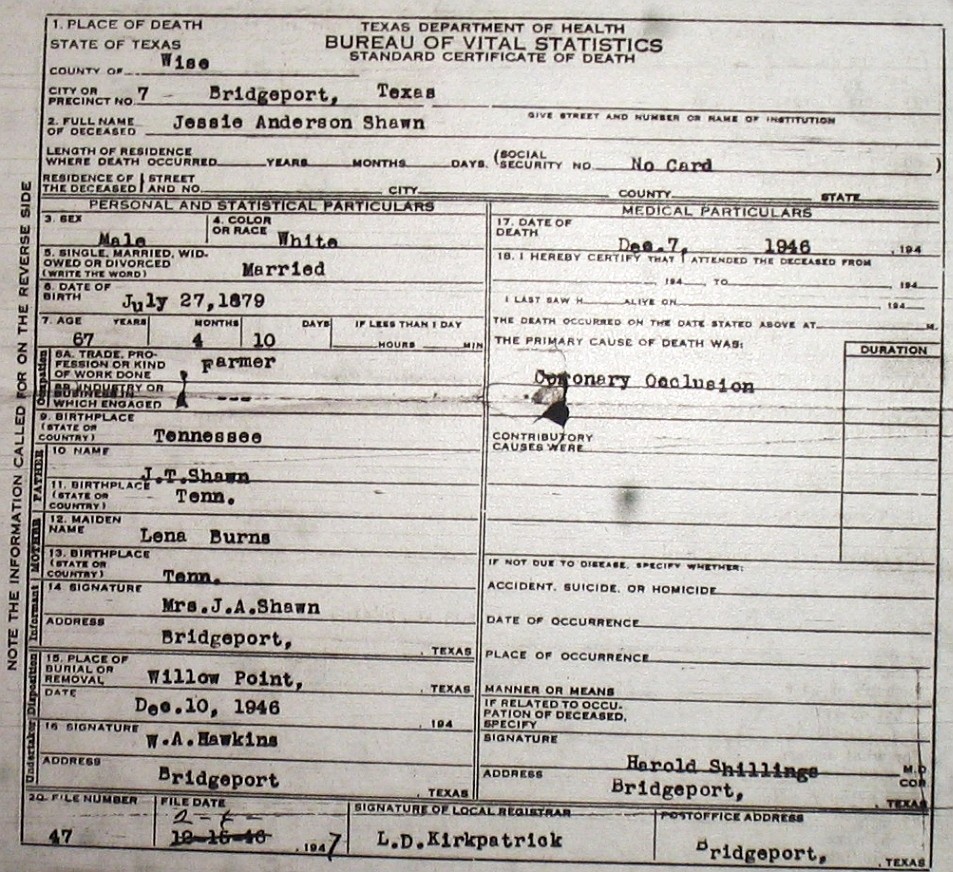 TEXAS DEPARTMENT OF HEALTH
BUREAU OF VITAL STATISTICS
STANDARD CERTIFICATE OF DEATH
1. PLACE OF DEATH
STATE OF TEXAS
COUNTY OF Wise
CITY OR PRECINCT NO. 7 Bridgeport, Texas
GIVE STREET AND NUMBER OR NAME OF INSTITUTION
2. FULL NAME OF DECEASED Jessie Anderson Shawn
LENGTH OF RESIDENCE WHERE DEATH OCCURRED YEARS MONTHS DAYS. (SOCIAL SECURITY NO. No Card )
RESIDENCE OF THE DECEASED STREET AND NO. CITY COUNTY STATE
NOTE THE INFORMATION CALLED FOR ON THE REVERSE SIDE
PERSONAL AND STATISTICAL PARTICULARS
3. SEX Male
4. COLOR OR RACE White
5. SINGLE, MARRIED, WIDOWED OR DIVORCED (WRITE THE WORD) Married
6. DATE OF BIRTH July 27,1879
7. AGE YEARS MONTHS DAYS IF LESS THAN 1 DAY
67 4 10 HOURS MIN
Occupation
8A. TRADE, PROFESSION OR KIND OF WORK DONE Farmer
8B. INDUSTRY OR BUSINESS IN WHICH ENGAGED ---
9. BIRTHPLACE (STATE OR COUNTRY) Tennessee
FATHER
10 NAME J.T.Shawn
11. BIRTHPLACE (STATE OR COUNTRY) Tenn.
MOTHER
12. MAIDEN NAME Lena Burns
13. BIRTHPLACE (STATE OR COUNTRY) Tenn.
Informant
14 SIGNATURE Mrs.J.A.Shawn
ADDRESS Bridgeport, , TEXAS
Disposition
15. PLACE OF BURIAL OR REMOVAL Willow Point, , TEXAS
DATE Dec.10, 1946 , 194
Undertaker
16 SIGNATURE W.A.Hawkins
ADDRESS Bridgeport , TEXAS
MEDICAL PARTICULARS
17. DATE OF DEATH Dec.7, 1946 , 194
18. I HEREBY CERTIFY THAT I ATTENDED THE DECEASED FROM
, 194 , TO , 194
I LAST SAW H ALIVE ON 194
THE DEATH OCCURRED ON THE DATE STATED ABOVE AT M.
THE PRIMARY CAUSE OF DEATH WAS: DURATION
Coronary Occlusion
CONTRIBUTORY CAUSES WERE
IF NOT DUE TO DISEASE, SPECIFY WHETHER:
ACCIDENT, SUICIDE, OR HOMICIDE
DATE OF OCCURRENCE
PLACE OF OCCURRENCE
MANNER OR MEANS
IF RELATED TO OCCUPATION OF DECEASED, SPECIFY
SIGNATURE Harold Shillings M.D
ADDRESS Bridgeport, COR
TEXAS
20. FILE NUMBER 47
FILE DATE 12-16-46 , 1947
SIGNATURE OF LOCAL REGISTRAR L.D.Kirkpatrick
POSTOFFICE ADDRESS Bridgeport, , TEXAS